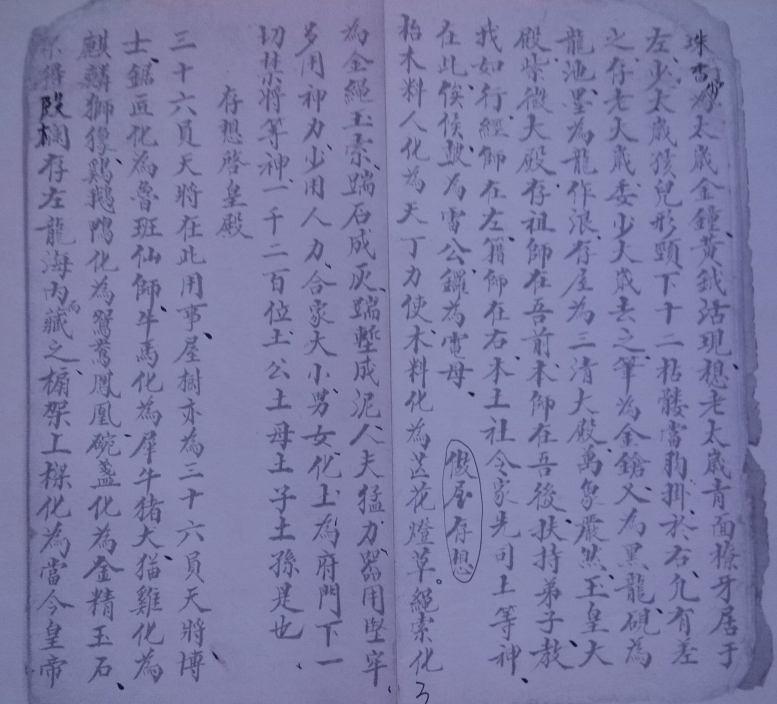 珠杏炒為太歲金鐘黃鉞活現、想老太歲青面獠牙居于
左、少太歲孩兒形頸下十二枯髏當胸掛、於右、凡有差
之、存老太歲委少太歲去之、筆為金鎗、又為黑龍、硯為
龍池、墨為龍作浪、存屋為三清大殿、萬象嚴然、玉皇大
殿、紫微大殿、存祖師在吾前、本師在吾後、扶持弟子教
我如行、經師在左、籍師在右、本土社令、家先司土等神、
在此俟候、鼓為雷公、鑼為電母、
假屋存想
抬木料人化為天丁力使、木料化為芯花燈草。繩索化
為金繩玉索、踹石成灰、踹塹成泥、人夫猛力、器用堅牢、
多用神力、少用人力、合家大小、男女化上為府門下一
切禁將等神、一千二百位土公土母土子土孫是也、
存想啓皇殿
三十六員天將在此用事、屋樹亦為三十六員天將、博
士、鋸匠化為魯班仙師、牛馬化為犀牛、猪犬、猫雞化為
麒麟獅㺄、鷄鵝鴨化為鴛鴦鳳凰、碗盞化為金精玉石、
得段欄存左龍海內而藏之、棚架工樑化為當今皇帝